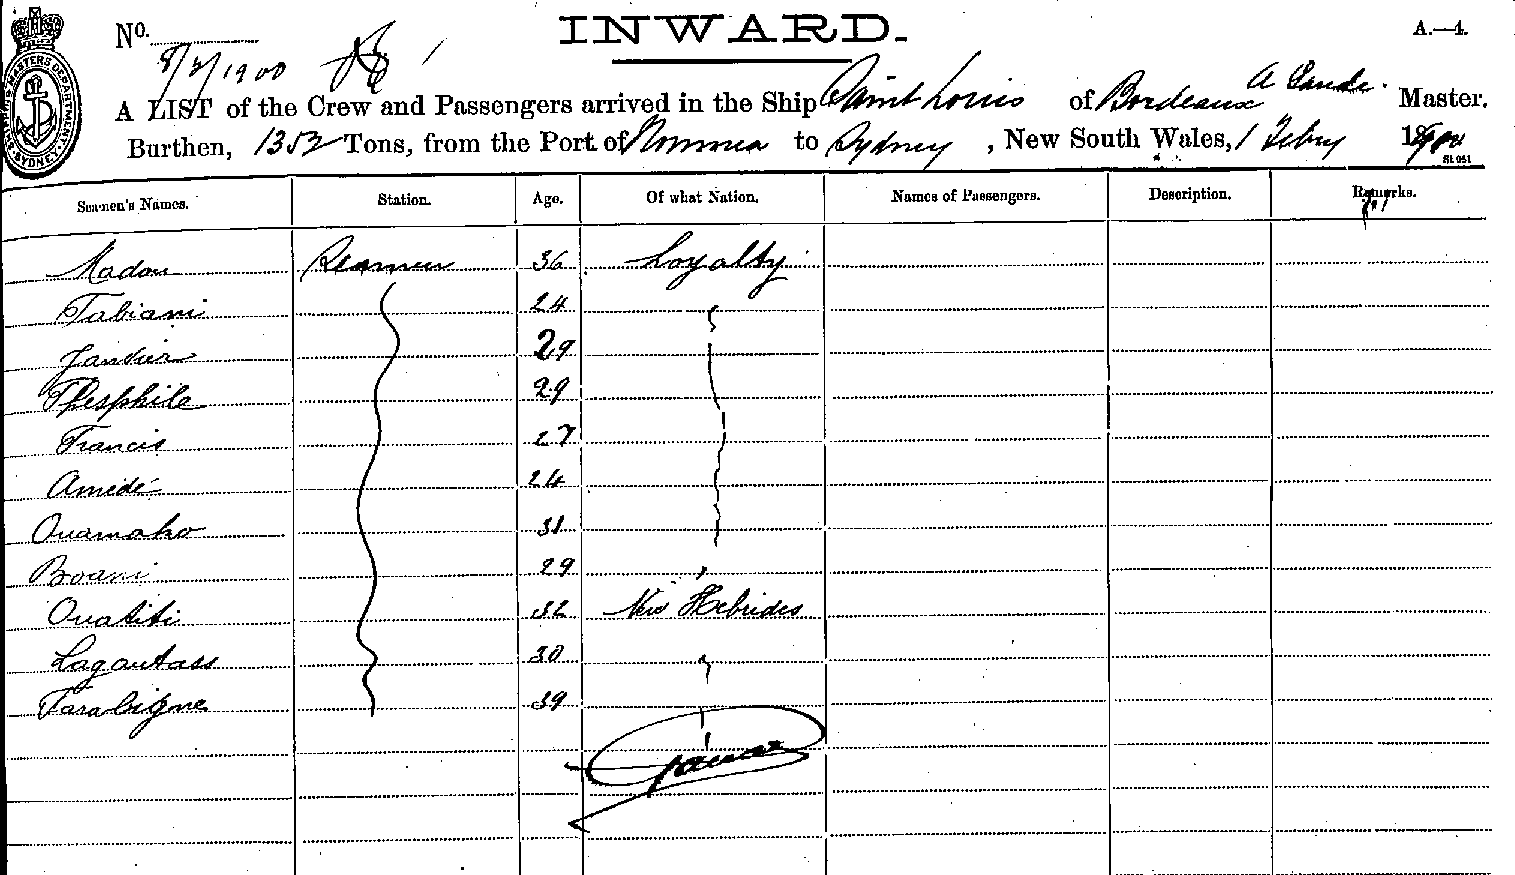 No. INWARD. A.—4.
8/2/1900
A LIST of the Crew and Passengers arrived in the Ship Saint Louis of Bordeaux A Lande Master.
Burthen, 1353 Tons, from the Port of Noumea to Sydney, New South Wales, 1 Febry 1900
Seamen's Names. Station. Age. Of what Nation. Names of Passengers. Description. Remarks.
Madou Seamen 36 Loyalty
Fabiani 24
Janvier 29
Thesphile 29
Francis 27
Amidé 24
Ouamako 31
Boani 29
Oualiti 32 New Hebrides
Lagoutass 30
Tarabigne 39